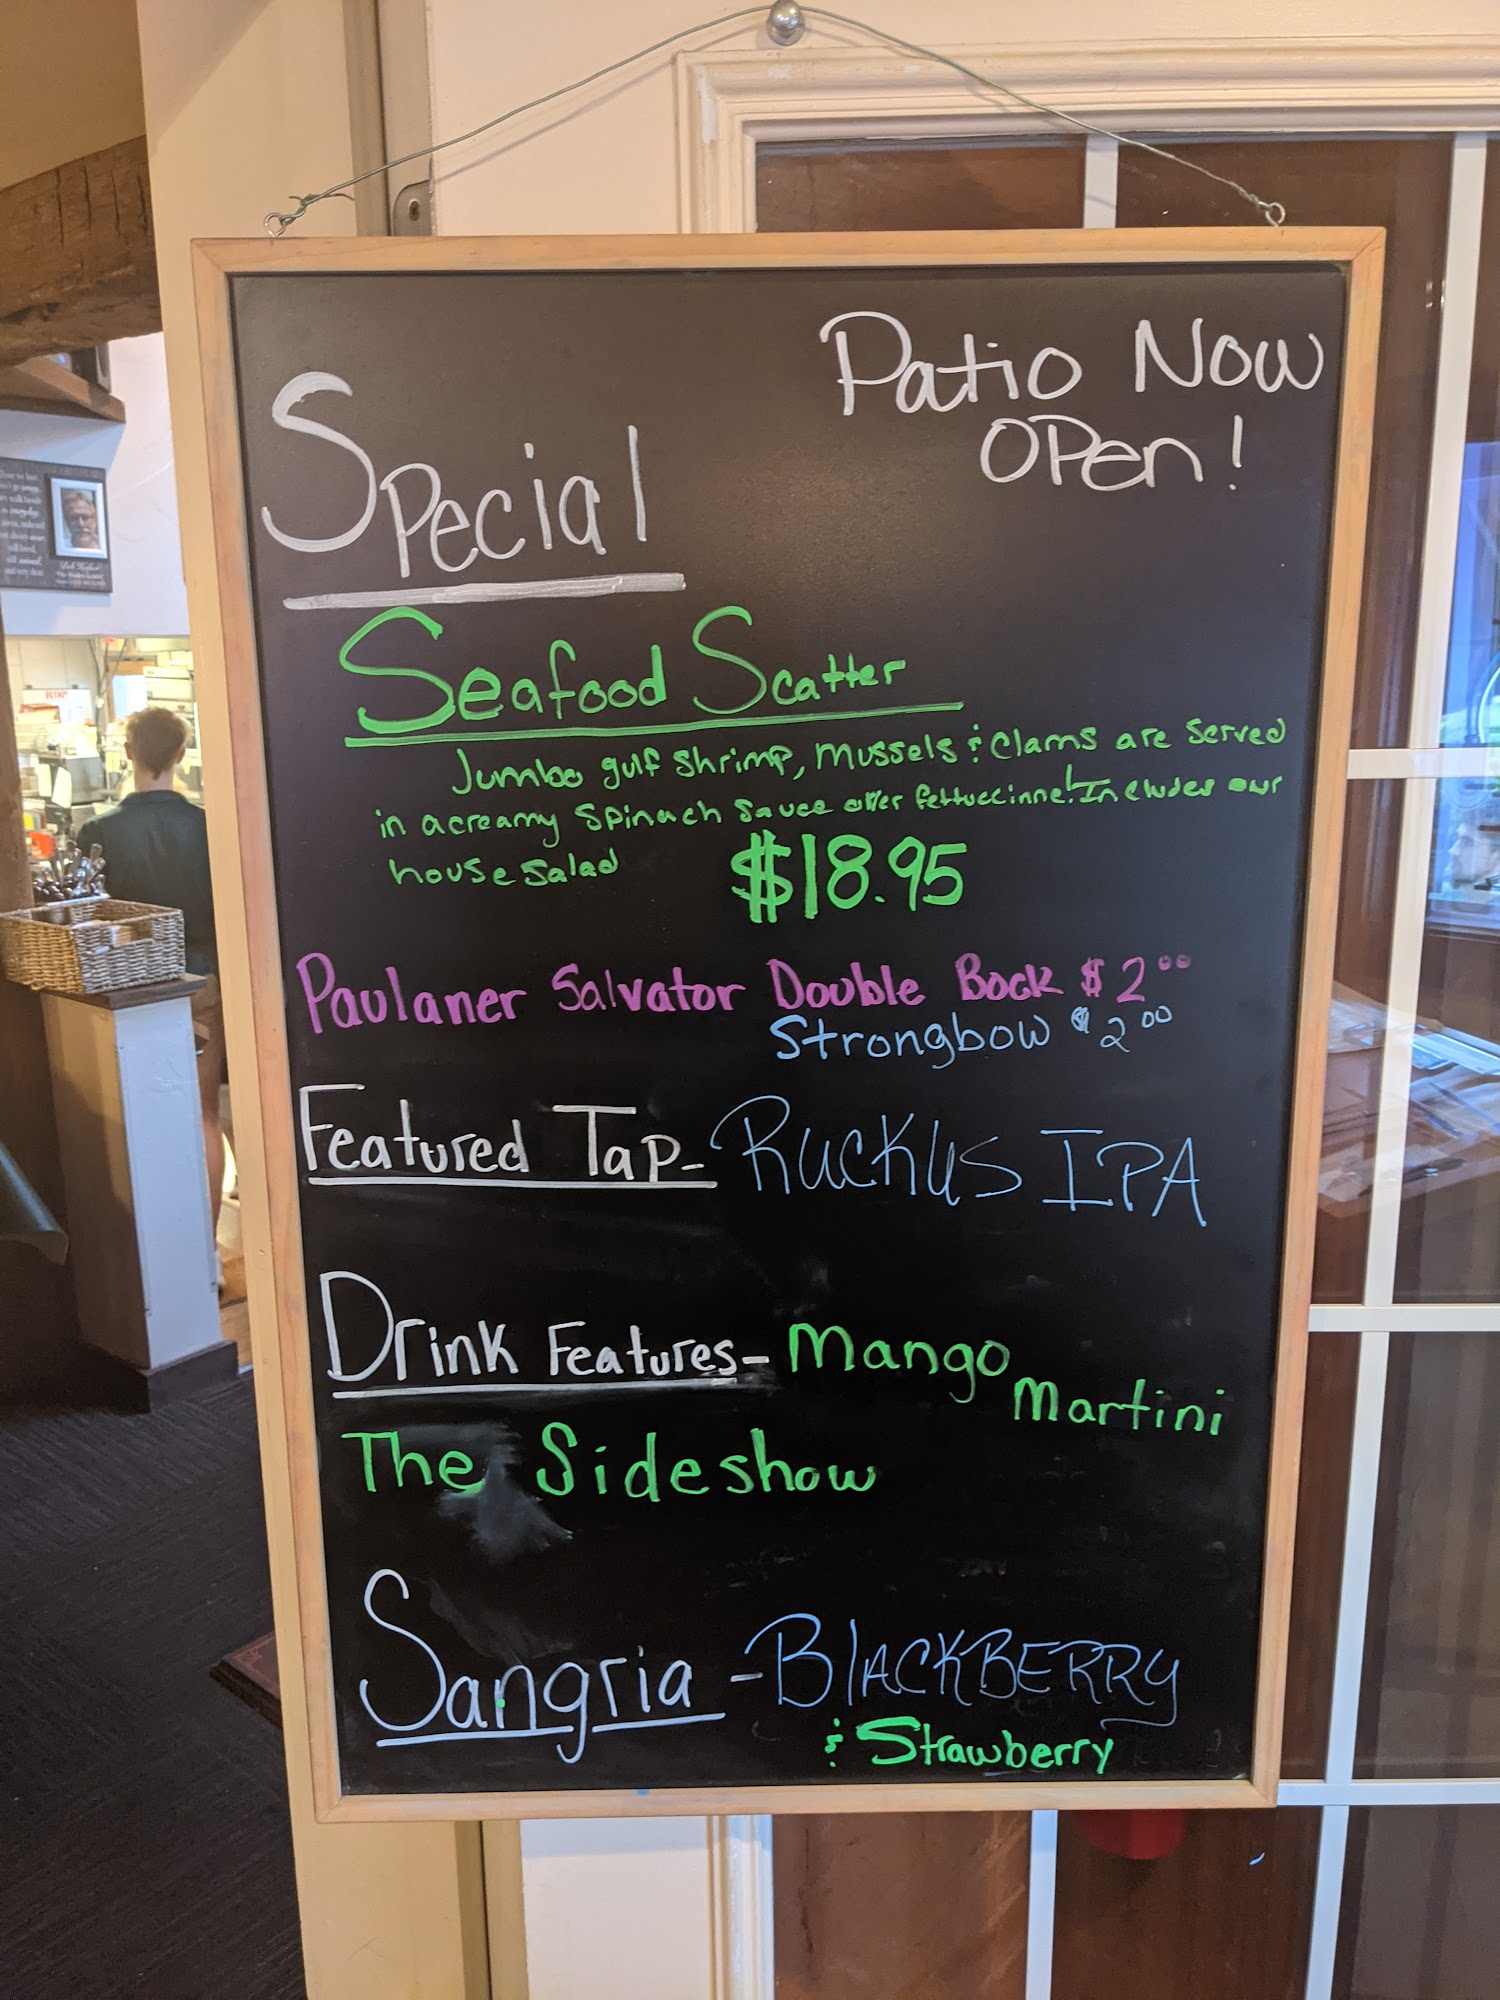 Patio Now
Open!
Special
Seafood Scatter
Jumbo gulf shrimp, mussels & clams are served
in a creamy spinach sauce over fettuccinne! Includes our
house salad
$18.95
Paulaner Salvator Double Bock $2.00
Strongbow $2.00
Featured Tap- Ruckus IPA
Drink Features- Mango
Martini
The Sideshow
Sangria - Blackberry
& Strawberry